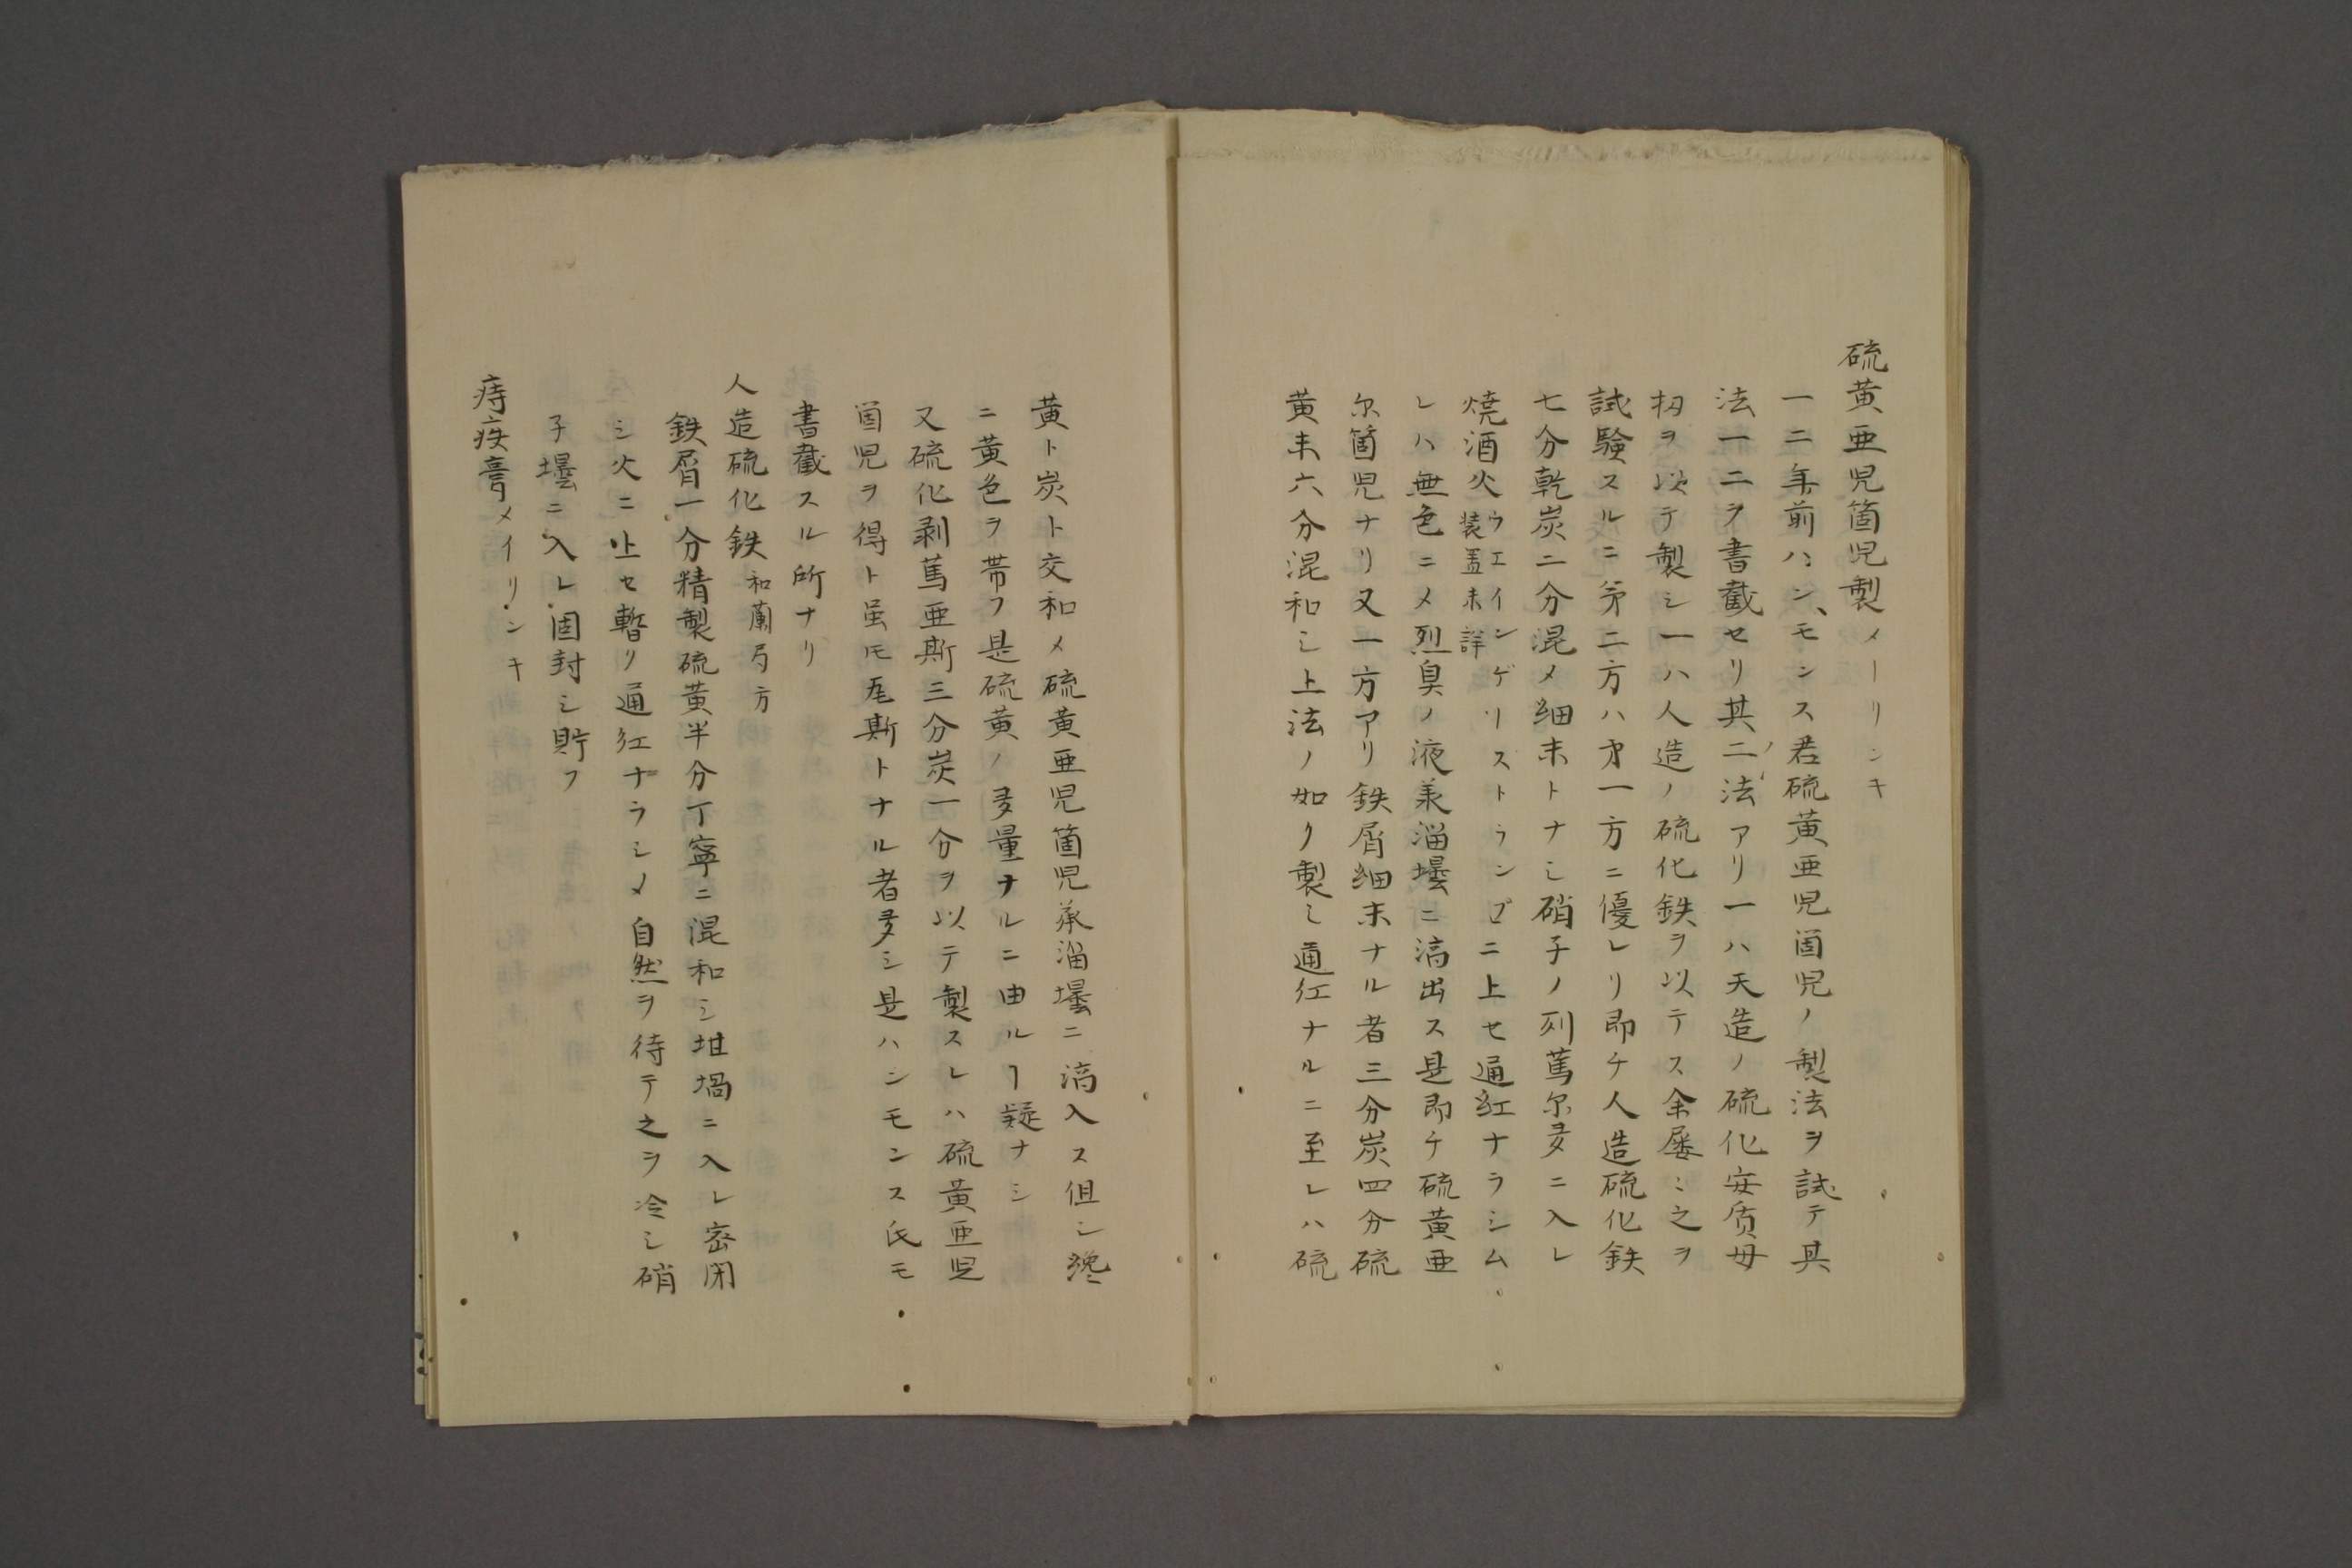 硫黄亜児箇児製メーリンキ
一二年前ハン、モンス君硫黄亜児箇児ノ製法ヲ試テ其
法一二ヲ書載セリ其二法アリ一ハ天造ノ硫化安质母
扨ヲ以テ製シ一ハ人造ノ硫化鉄ヲ以テス余屡ミ之ヲ
試験スルニ第二方ハ第一方ニ優レリ即チ人造硫化鉄
七分乾炭二分混メ細末トナシ硝子ノ列篤尓多ニ入レ
焼酒火装盖未詳ウエインゲリストランプニ上セ通紅ナラシム
レハ無色ニメ烈臭ノ液兼溜壜ニ滴出ス是即チ硫黄亜
尓箇児ナリ又一方アリ鉄屑細末ナル者三分炭四分硫
黄末六分混和シ上法ノ如ク製シ通紅ナルニ至レハ硫
黄ト炭ト交和メ硫黄亜児箇児承溜壜ニ滴入ス但シ纔
ニ黄色ヲ帯フ是硫黄ノ多量ナルニ由ルヿ疑ナシ
又硫化剥篤亜斯三分炭一分ヲ以テ製スレハ硫黄亜児
箇児ヲ得ト虽𪜈瓦斯トナル者多シ是ハンモンス氏モ
書載スル所ナリ
人造硫化鉄和蘭局方
鉄屑一分精製硫黄半分丁寧ニ混和シ坩堝ニ入レ密閉
シ火ニ上セ暫り通紅ナラシメ自然ヲ待テ之ヲ冷シ硝
子壜ニ入レ固封シ貯フ
痔疾膏メイリンキ